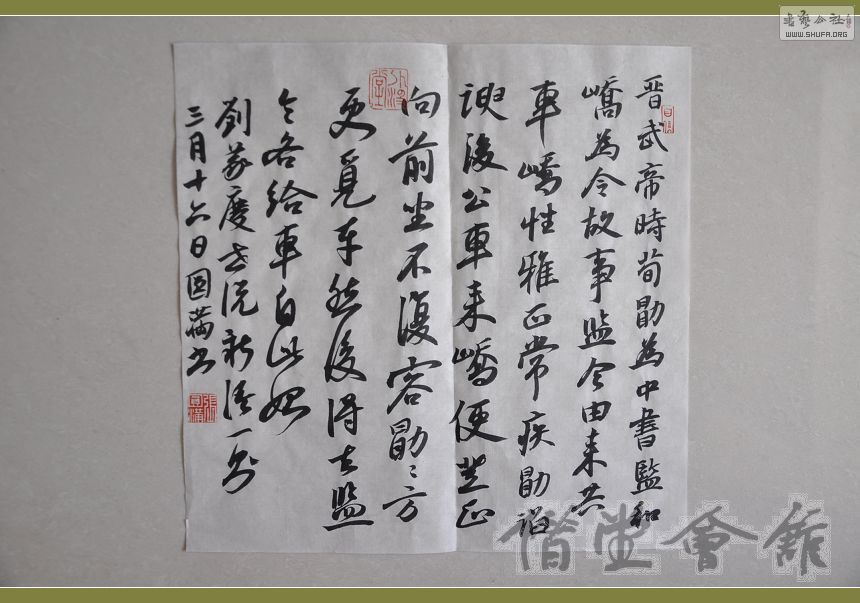 晋武帝時荀勖為中書監和
嶠為令故事監令由来共
車嶠性雅正常疾勖諂
諛後公車来嶠便登正
向前坐不復容勖〻方
更覓车然後得去監
令各給車自此始
劉義慶世说新语一則
三月十六日圆满书
書藝公社
WWW.SHUFA.ORG